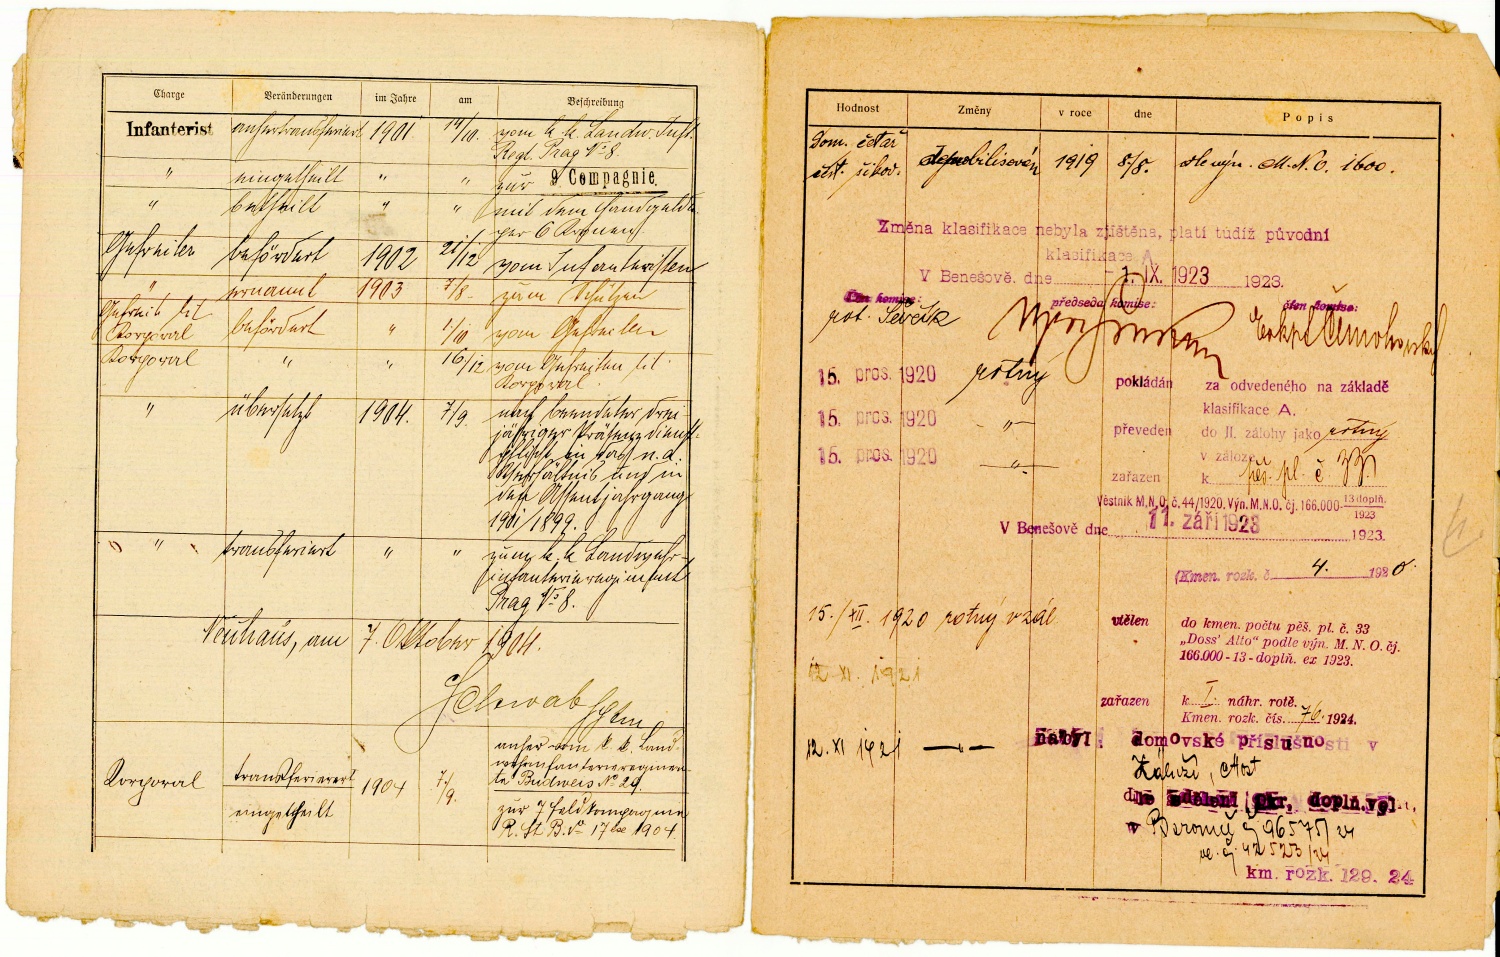 Charge Veränderungen im Jahre am Beschreibung
Infanterist anhertransferiert 1901 14/10. vom k. k. Landw. Inft.
Regt. Prag No 8.
" eingetheilt " " zur 9. Compagnie.
" betheilt " " mit dem Handgelde
per 6 Kronen
Gefreiter befördert 1902 21/12 vom Infanteristen
" ernannt 1903 7/8. zum Schützen
Gefreit. tit. Korporal befördert " 1/10 vom Gefreiten
Korporal " " 16/12 vom Gefreiten tit.
Korporal.
" übersetzt 1904. 7/9. nach beendeter drei-
jähriger Präsenzdienst-
pflicht in das n. a.
Verhältnis und in
den Assentjahrgang
1901/1899.
" transferiert " " zum k. k. Landwehr-
infanterieregiment
Prag No 8.
Neuhaus, am 7. Oktober 1904.
Korporal transferiert 1904 7/9. anher vom k. k. Land-
wehrinfanterieregimen-
te Budweis No 29.
eingetheilt zur 7 Feldkompagnie
R. St. B. No 17 1904
Hodnost Změny v roce dne Popis
Dom. četař
demobilisován 1919 8/8. dle výn. M.N.O. 1600.
Změna klasifikace nebyla zjištěna, platí tudíž původní
klasifikace A.
V Benešově, dne 1. IX. 1923 1923.
člen komise: předseda komise: člen komise:
rot. Ševčík
15. pros. 1920 rotný pokládán za odvedeného na základě
klasifikace A.
15. pros. 1920 " převeden do II. zálohy jako rotný
15. pros. 1920 " zařazen v záloze
k pěš. pl. č. 33
Věstník M.N.O. č. 44/1920. Výn. M.N.O. čj. 166.000- 13 doplň. 1923
V Benešově dne 11. září 1923 1923.
(Kmen. rozk. č. 4. 1920
15./XII. 1920 rotný v zál. vtělen do kmen. počtu pěš. pl. č. 33
„Doss' Alto" podle výn. M. N. O. čj.
166.000-13-doplň. ex 1923.
12. XI. 1921
zařazen k I. náhr. rotě.
Kmen. rozk. čís. 76. 1924.
12. XI 1921 " nabyl domovské příslušnosti v
Záluží, Most
dle sdělení okr. doplň. vel.
v Berouně čj 96575/24
42523/24
km. rozk. 129. 24